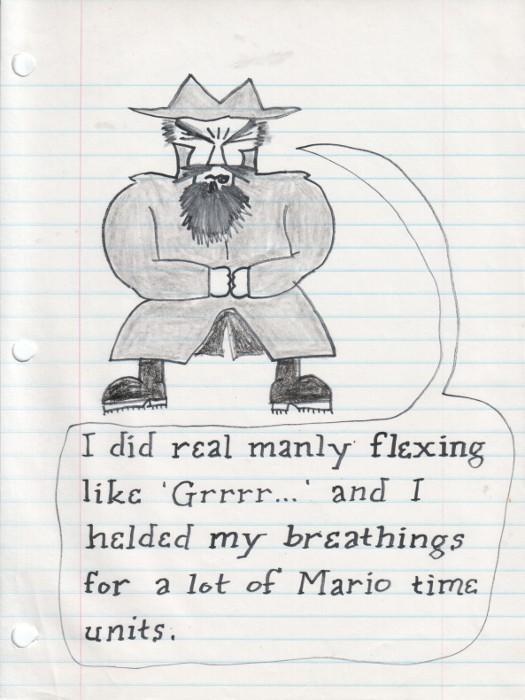 I did real manly flexing
like 'Grrrr...' and I
helded my breathings
for a lot of Mario time
units.